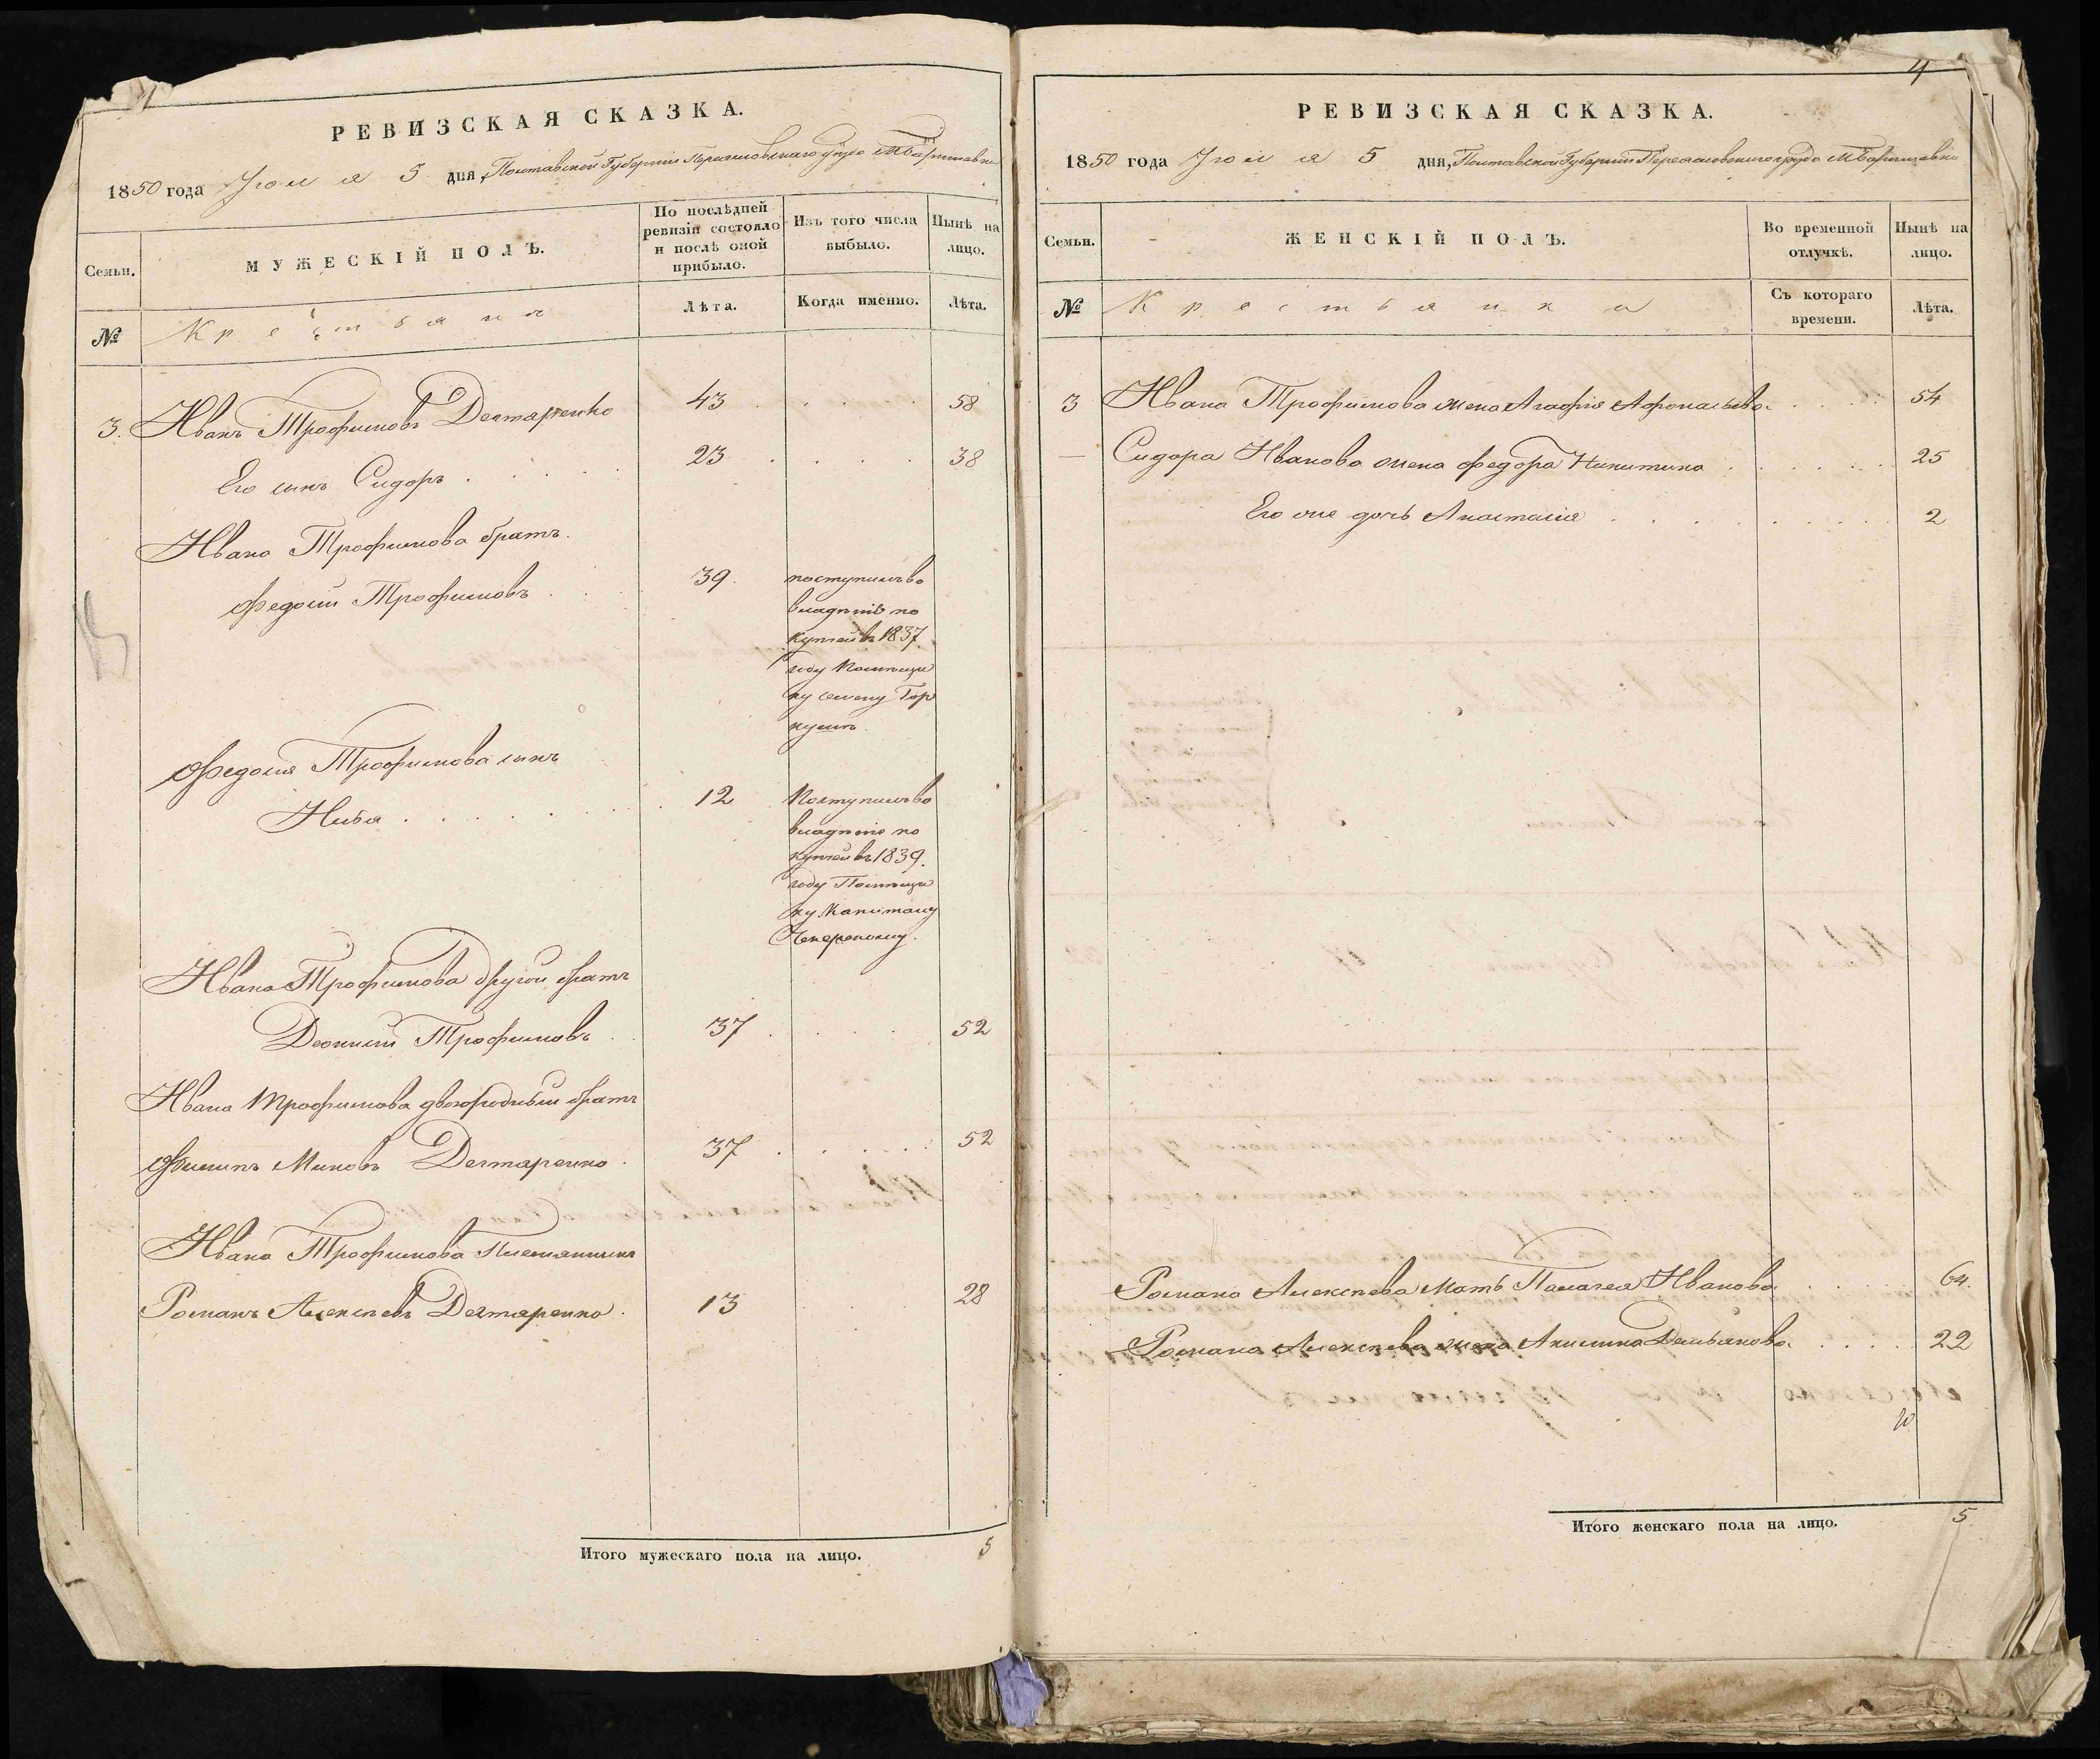 4
РЕВИЗСКАЯ СКАЗКА.
1850 года Іюля 5 дня, Полтавской Губерніи Переяславскаго уезда
Семьи.
МУЖЕСКІЙ ПОЛЪ.
По послѣдней ревизіи состояло и послѣ оной прибыло.
Изъ того числа выбыло.
Нынѣ на лицо.
№
Крестьяне
Лѣта.
Когда именно.
Лѣта.
3. Иванъ Трофимовъ Дегтяренко 43 58
Его сынъ Сидоръ 23 38
Ивана Трофимова братъ
Федосій Трофимовъ 39
поступилъ во
владѣніе по
купчей въ 1837
году Помѣщи
ку Семену Гор
Федосія Трофимова сынъ
Илья 12
Поступилъ во
владѣніе по
купчей въ 1839
году Помѣщи
ку Капитану
Ивана Трофимова другой братъ
Деонисій Трофимовъ 37 52
Ивана Трофимова двоюродный братъ
Филипъ Миновъ Дегтяренко 37 52
Ивана Трофимова Племянникъ
Романъ Алексѣевъ Дегтяренко 13 28
Итого мужескаго пола на лицо. 5
4
РЕВИЗСКАЯ СКАЗКА.
1850 года Іюля 5 дня, Полтавской Губерніи Переяславскаго уезда
Семьи.
ЖЕНСКІЙ ПОЛЪ.
Во временной отлучкѣ.
Нынѣ на лицо.
№
Крестьянки
Съ котораго времени.
Лѣта.
3 Ивана Трофимова жена Агафія Афонасьева 54
Сидора Иванова жена Федора Никитина 25
Его же дочь Анастасія 2
Романа Алексѣева мать Палагея Иванова 64
Романа Алексѣева жена Акилина Демьянова 22
Итого женскаго пола на лицо. 5